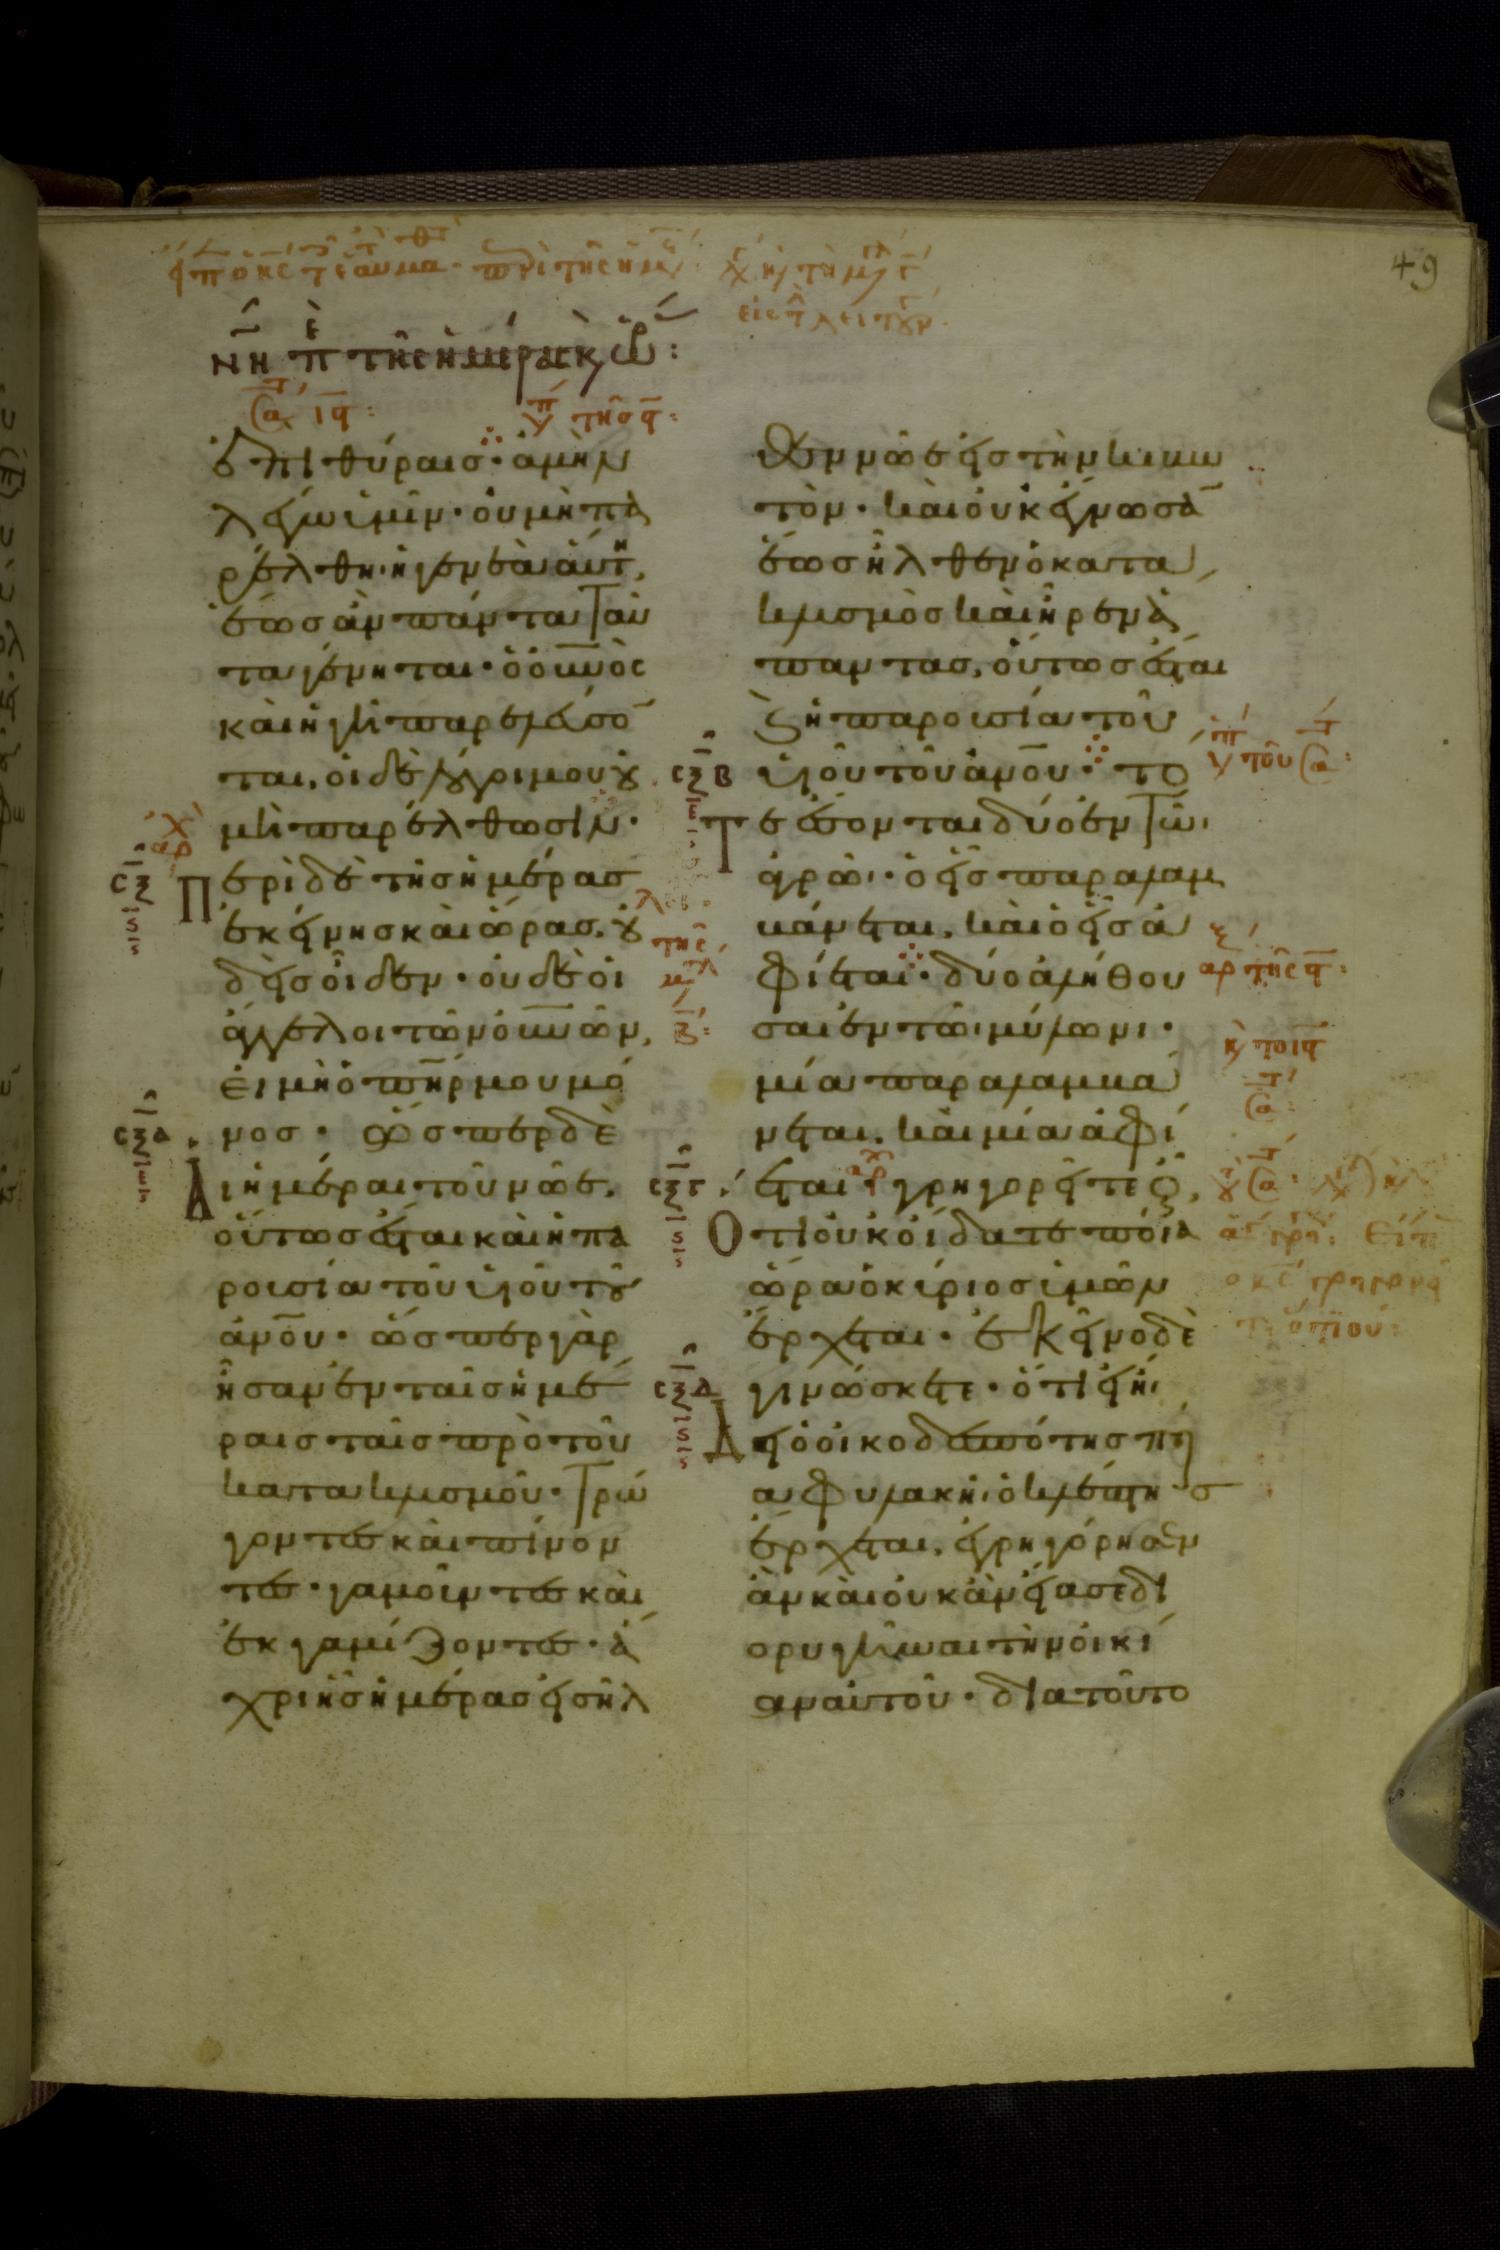 49
ΝΗ ΠΕ της ημέρας κ ωρ :
ἐπὶ θύραισ · ἀμὴν
λέγω ὑμῖν · οὐ μὴ πα
ρέλθη ἡ γενεὰ αὕτη,
ἕωσ ἂν πάντα ταῦ
τα γένηται · ὁ οὐνὸς
καὶ ἡ γῆ παρελεύσο
ται, οἱ δὲ λόγοι μου οὐ
μὴ παρέλθωσιν ·
Περὶ δὲ τῆσ ἡμέρασ
ἐκείνησ καὶ ὥρασ, οὐ
δεὶσ οἶδεν · οὐδὲ οἱ
ἄγγελοι τῶν οὐνῶν,
εἰ μὴ ὁ πηρ μου μό
νοσ · ὥσπερ δὲ
Αἱ ἡμέραι τοῦ νῶε,
οὕτωσ ἔσται καὶ ἡ πα
ρουσία τοῦ υἱοῦ τοῦ
ἀνου · ὥσπερ γὰρ
ἦσαν ἐν ταῖσ ἡμέ
ραισ ταῖσ πρὸ τοῦ
κατακλυσμοῦ · τρώ
γοντεσ καὶ πίνον
τεσ · γαμοῦντεσ καὶ
ἐκγαμίζοντεσ · ἄ
χρι ἧσ ἡμέρασ εἰσῆλ
θεν νῶε εἰσ τὴν κιβω
τόν · καὶ οὐκ ἔγνωσα
ἕωσ ἦλθεν ὁ κατα
κλυσμὸσ καὶ ἦρεν ἅ
παντασ, οὕτωσ ἔσται
ἡ παρουσία τοῦ
υἱοῦ τοῦ ἀνου · το
Τε ἔσονται δύο ἐν τῶ
ἀγρῶ · ὁ εἷσ παραλαμ
βάνεται, καὶ ὁ εἷσ ἀ
φίεται · δύο ἀλήθου
σαι ἐν τῶ μύλωνι ·
μία παραλαμβά
νεται, καὶ μία ἀφί
εται · γρηγορεῖτε οὖν,
Ὅτι οὐκ οἴδατε ποία
ὥρα ὁ κύριοσ ὑμῶν
ἔρχεται · ἐκεῖνο δὲ
γινώσκετε · ὅτι εἰ ἤ
Δει ὁ οἰκοδεσπότησ ποί
α φυλακῆ ὁ κλέπτησ
ἔρχεται, ἐγρηγόρησεν
ἂν καὶ οὐκ ἂν εἴασε δι
ορυγῆναι τὴν οἰκί
αν αὐτοῦ · διὰ τοῦτο